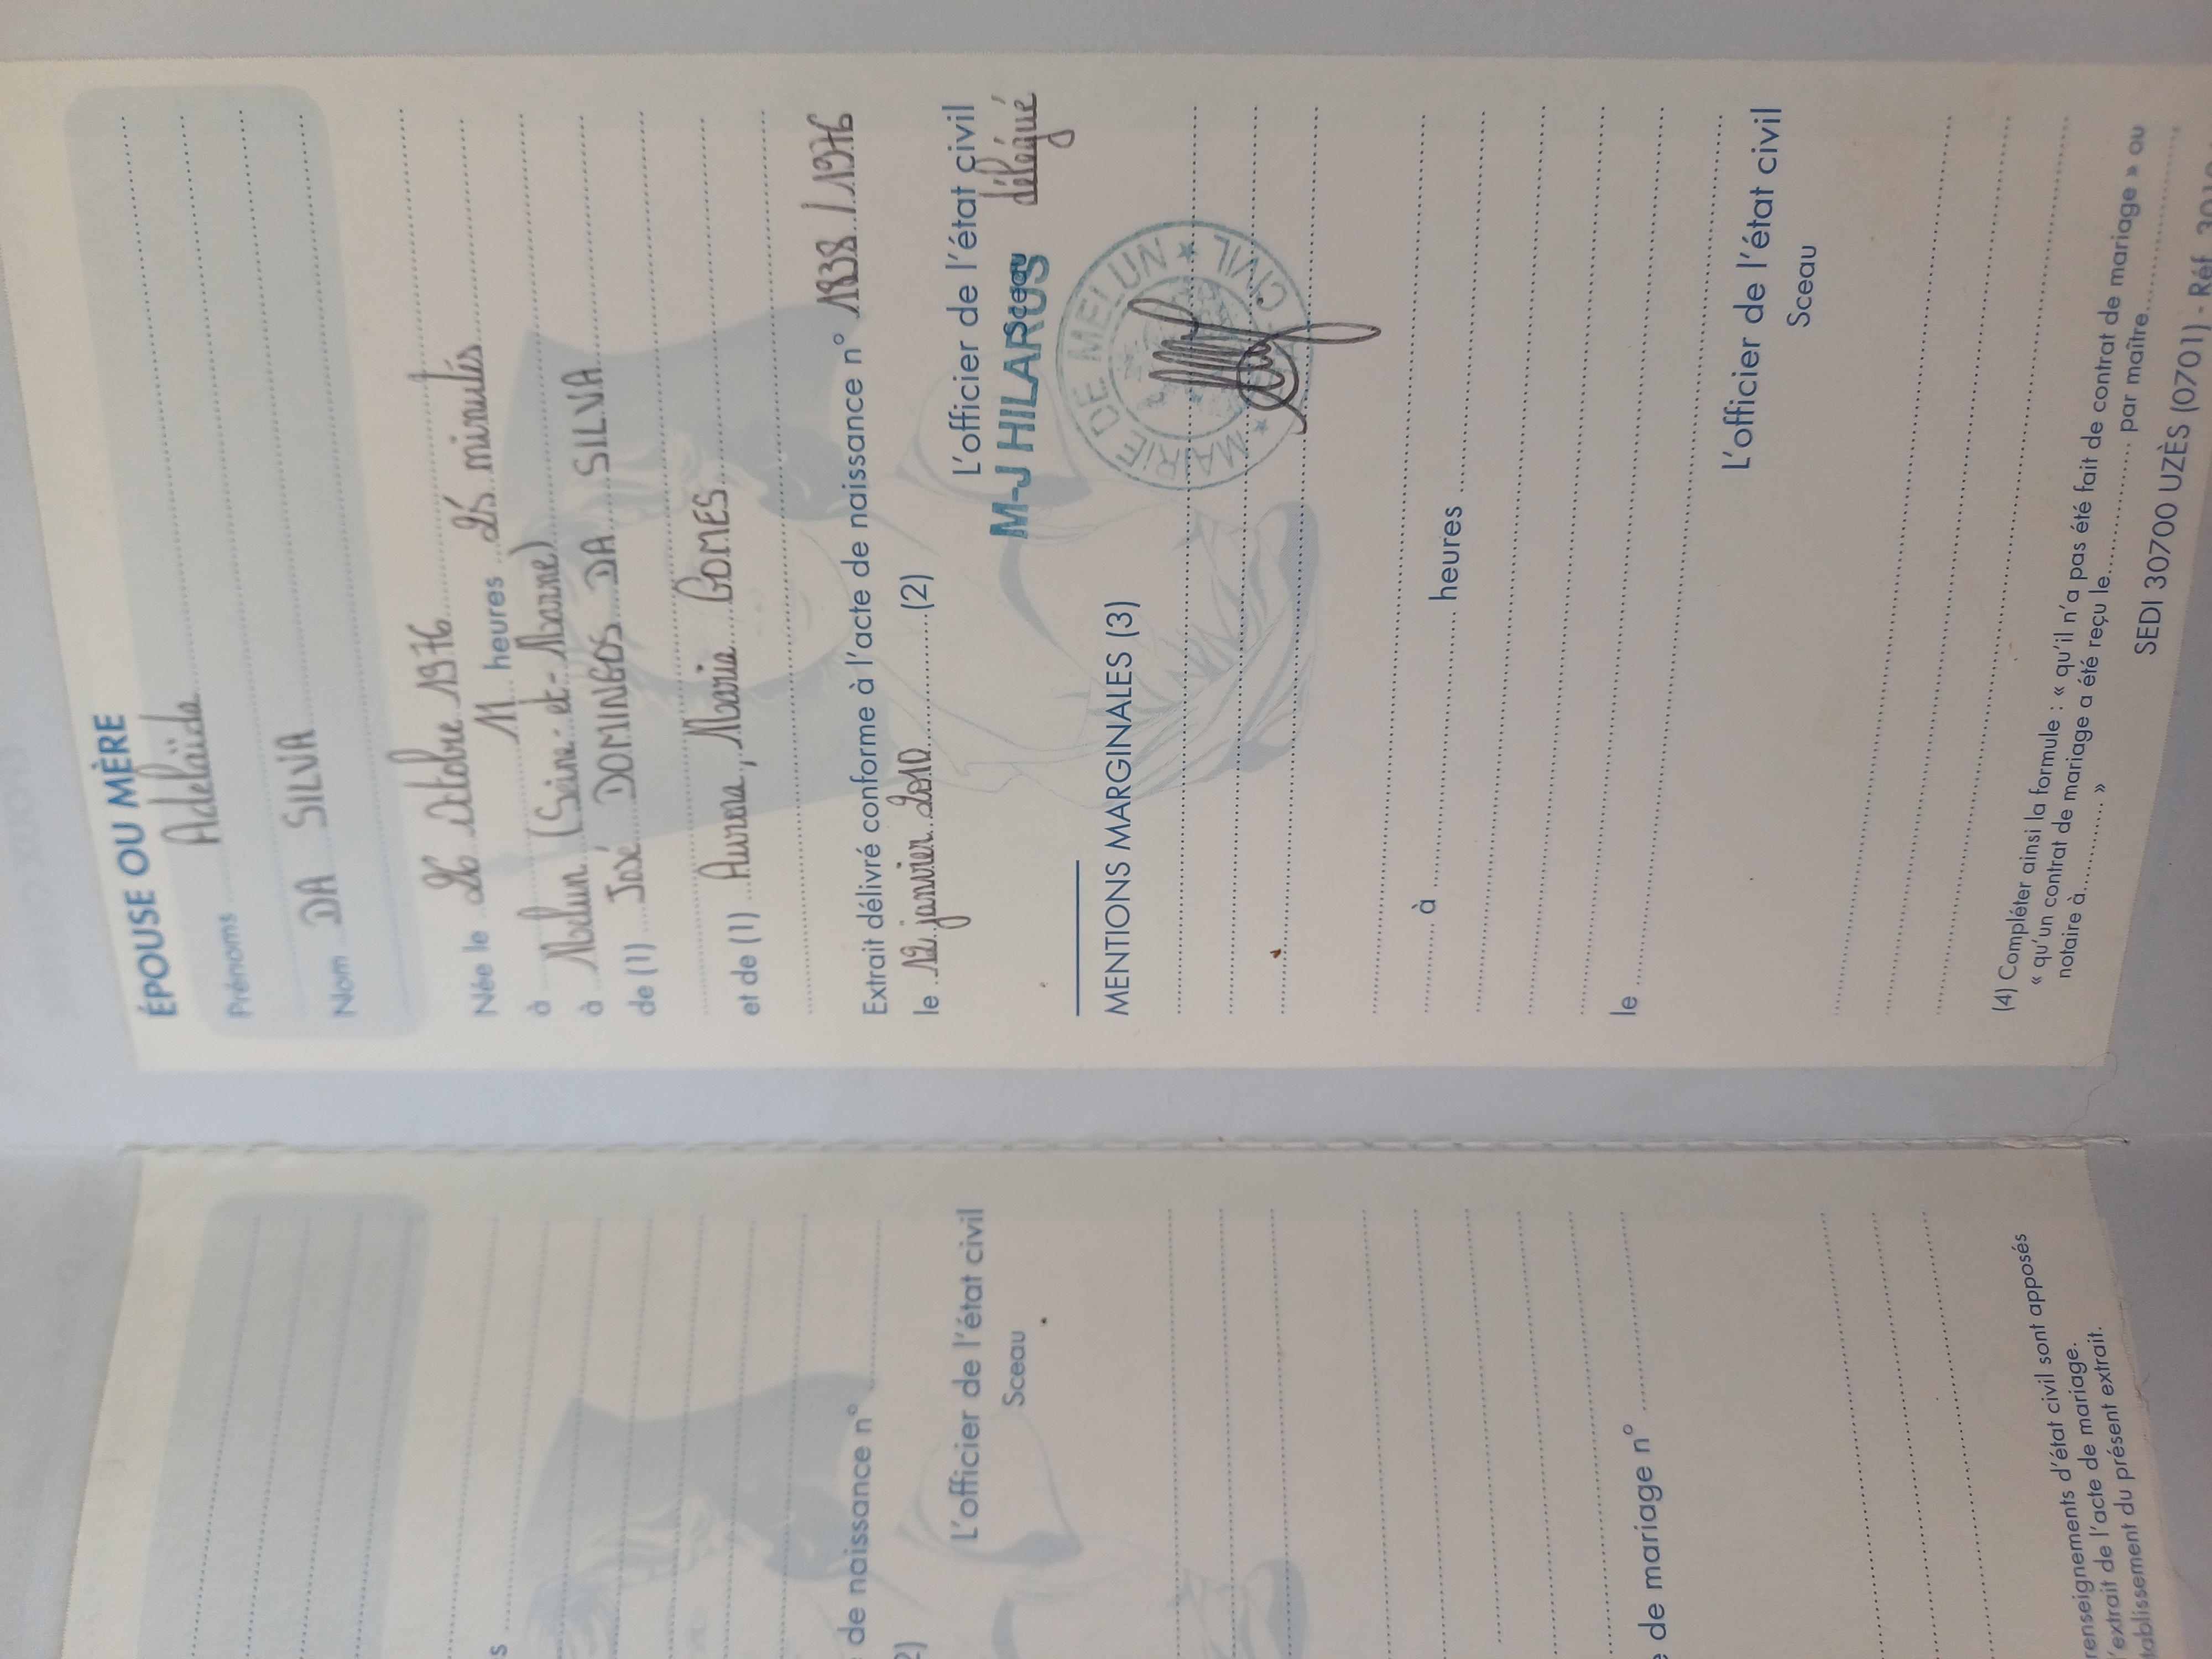 ÉPOUSE OU MÈRE
Prénoms Adelaïde
Nom DA SILVA
Née le 26 Octobre 1976
à 11 heures 25 minutes
à Melun (Seine-et-Marne)
de (1) José DOMINGOS DA SILVA
et de (1) Aurora, Maria GOMES
Extrait délivré conforme à l'acte de naissance n° 1838/1976
le 12 janvier 2010 (2)
L'officier de l'état civil
délégué
Sceau
M-J HILARUS
MAIRIE DE MELUN ★ CIVIL ★
MENTIONS MARGINALES (3)
à heures
le
L'officier de l'état civil
Sceau
(4) Compléter ainsi la formule : « qu'il n'a pas été fait de contrat de mariage » ou
« qu'un contrat de mariage a été reçu le par maître
notaire à »
SEDI 30700 UZÈS (0701) - Réf.
s
de naissance n°
2)
L'officier de l'état civil
Sceau
de mariage n°
renseignements d'état civil sont apposés
l'extrait de l'acte de mariage.
établissement du présent extrait.